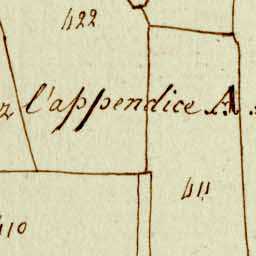 422
l'appendice A.
411
410